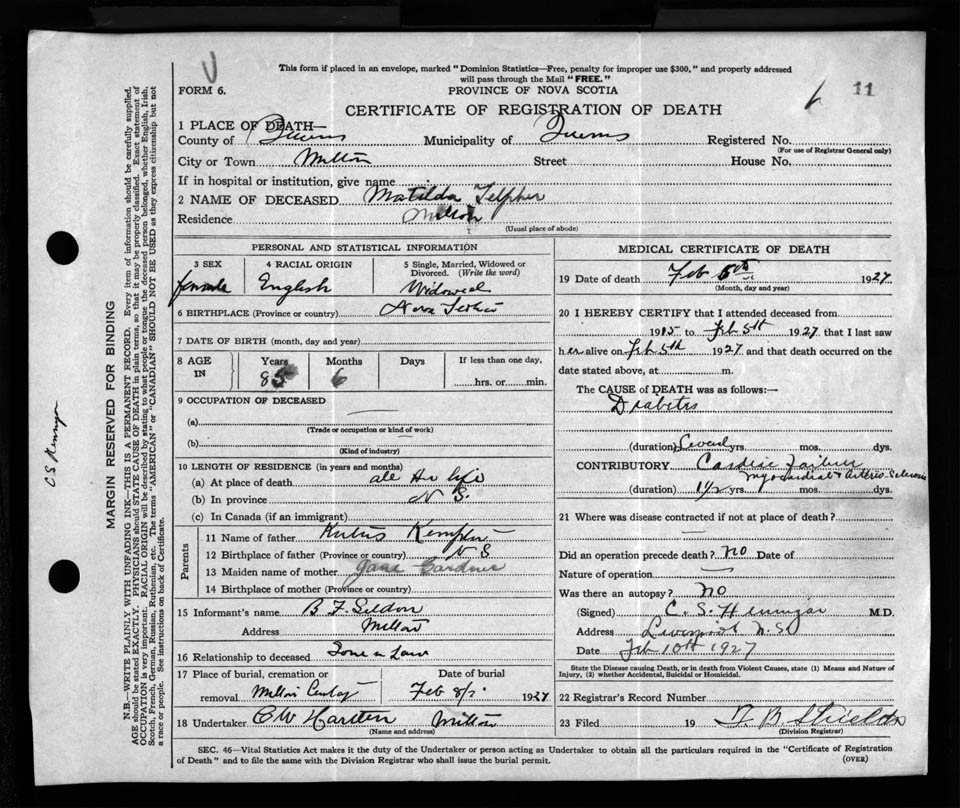 This form if placed in an envelope, marked "Dominion Statistics—Free, penalty for improper use $300," and properly addressed
will pass through the Mail "FREE."
FORM 6. PROVINCE OF NOVA SCOTIA
CERTIFICATE OF REGISTRATION OF DEATH 11
1 PLACE OF DEATH—
County of Queens Municipality of Queens Registered No.
(For use of Registrar General only)
City or Town Milton Street House No.
If in hospital or institution, give name
2 NAME OF DECEASED Matilda Telpher
Residence Milton
(Usual place of abode)
PERSONAL AND STATISTICAL INFORMATION
3 SEX 4 RACIAL ORIGIN 5 Single, Married, Widowed or
Divorced. (Write the word)
female English Widowed
6 BIRTHPLACE (Province or country) Nova Scotia
7 DATE OF BIRTH (month, day and year)
8 AGE IN Years Months Days If less than one day,
85 6 hrs. or min.
9 OCCUPATION OF DECEASED
(a)
(Trade or occupation or kind of work)
(b)
(Kind of industry)
10 LENGTH OF RESIDENCE (in years and months)
(a) At place of death all her life
(b) In province N S.
(c) In Canada (if an immigrant)
Parents
11 Name of father Rufus Kempton
12 Birthplace of father (Province or country) N S
13 Maiden name of mother Jane Gardner
14 Birthplace of mother (Province or country)
15 Informant's name B F Seldon
Address Milton
16 Relationship to deceased Son in Law
17 Place of burial, cremation or Date of burial
removal Milton Cemetery Feb 8/ 1927
18 Undertaker C W Harten Milton
(Name and address)
MEDICAL CERTIFICATE OF DEATH
19 Date of death Feb 6th 1927
(Month, day and year)
20 I HEREBY CERTIFY that I attended deceased from
1915 to Feb 5th 1927 that I last saw
her alive on Feb 5th 1927 and that death occurred on the
date stated above, at m.
The CAUSE of DEATH was as follows:—
Diabetes
(duration) Several yrs. mos. dys.
CONTRIBUTORY Cardiac Failure
myocardial & Arterio-Sclerosis
(duration) 1½ yrs. mos. dys.
21 Where was disease contracted if not at place of death?
Did an operation precede death? no Date of
Nature of operation
Was there an autopsy? no
(Signed) C. S. Hennigar M.D.
Address Liverpool N.S.
Date Feb 10th 1927
State the Disease causing Death, or in death from Violent Causes, state (1) Means and Nature of
Injury, (2) whether Accidental, Suicidal or Homicidal.
22 Registrar's Record Number
23 Filed 19 F. B. Shields
(Division Registrar)
SEC. 46—Vital Statistics Act makes it the duty of the Undertaker or person acting as Undertaker to obtain all the particulars required in the "Certificate of Registration
of Death" and to file the same with the Division Registrar who shall issue the burial permit. (OVER)
MARGIN RESERVED FOR BINDING
N.B.—WRITE PLAINLY WITH UNFADING INK—THIS IS A PERMANENT RECORD. Every item of information should be carefully supplied.
AGE should be stated EXACTLY. PHYSICIANS should STATE CAUSE OF DEATH in plain terms, so that it may be properly classified. Exact statement of
OCCUPATION is very important. RACIAL ORIGIN will be described by stating to what people or tongue the deceased person belonged, whether English, Irish,
Scotch, French, German, Russian, Ruthenian, etc. The terms "AMERICAN" or "CANADIAN" SHOULD NOT BE USED as they express citizenship but not
a race or people. See instructions on back of Certificate.